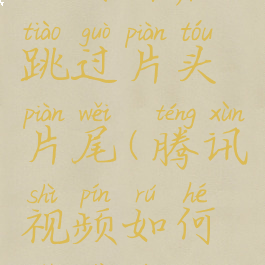 tiào guò piàn tóu
跳过片头
piàn wěi téng xùn
片尾(腾讯
shì pín rú hé
视频如何